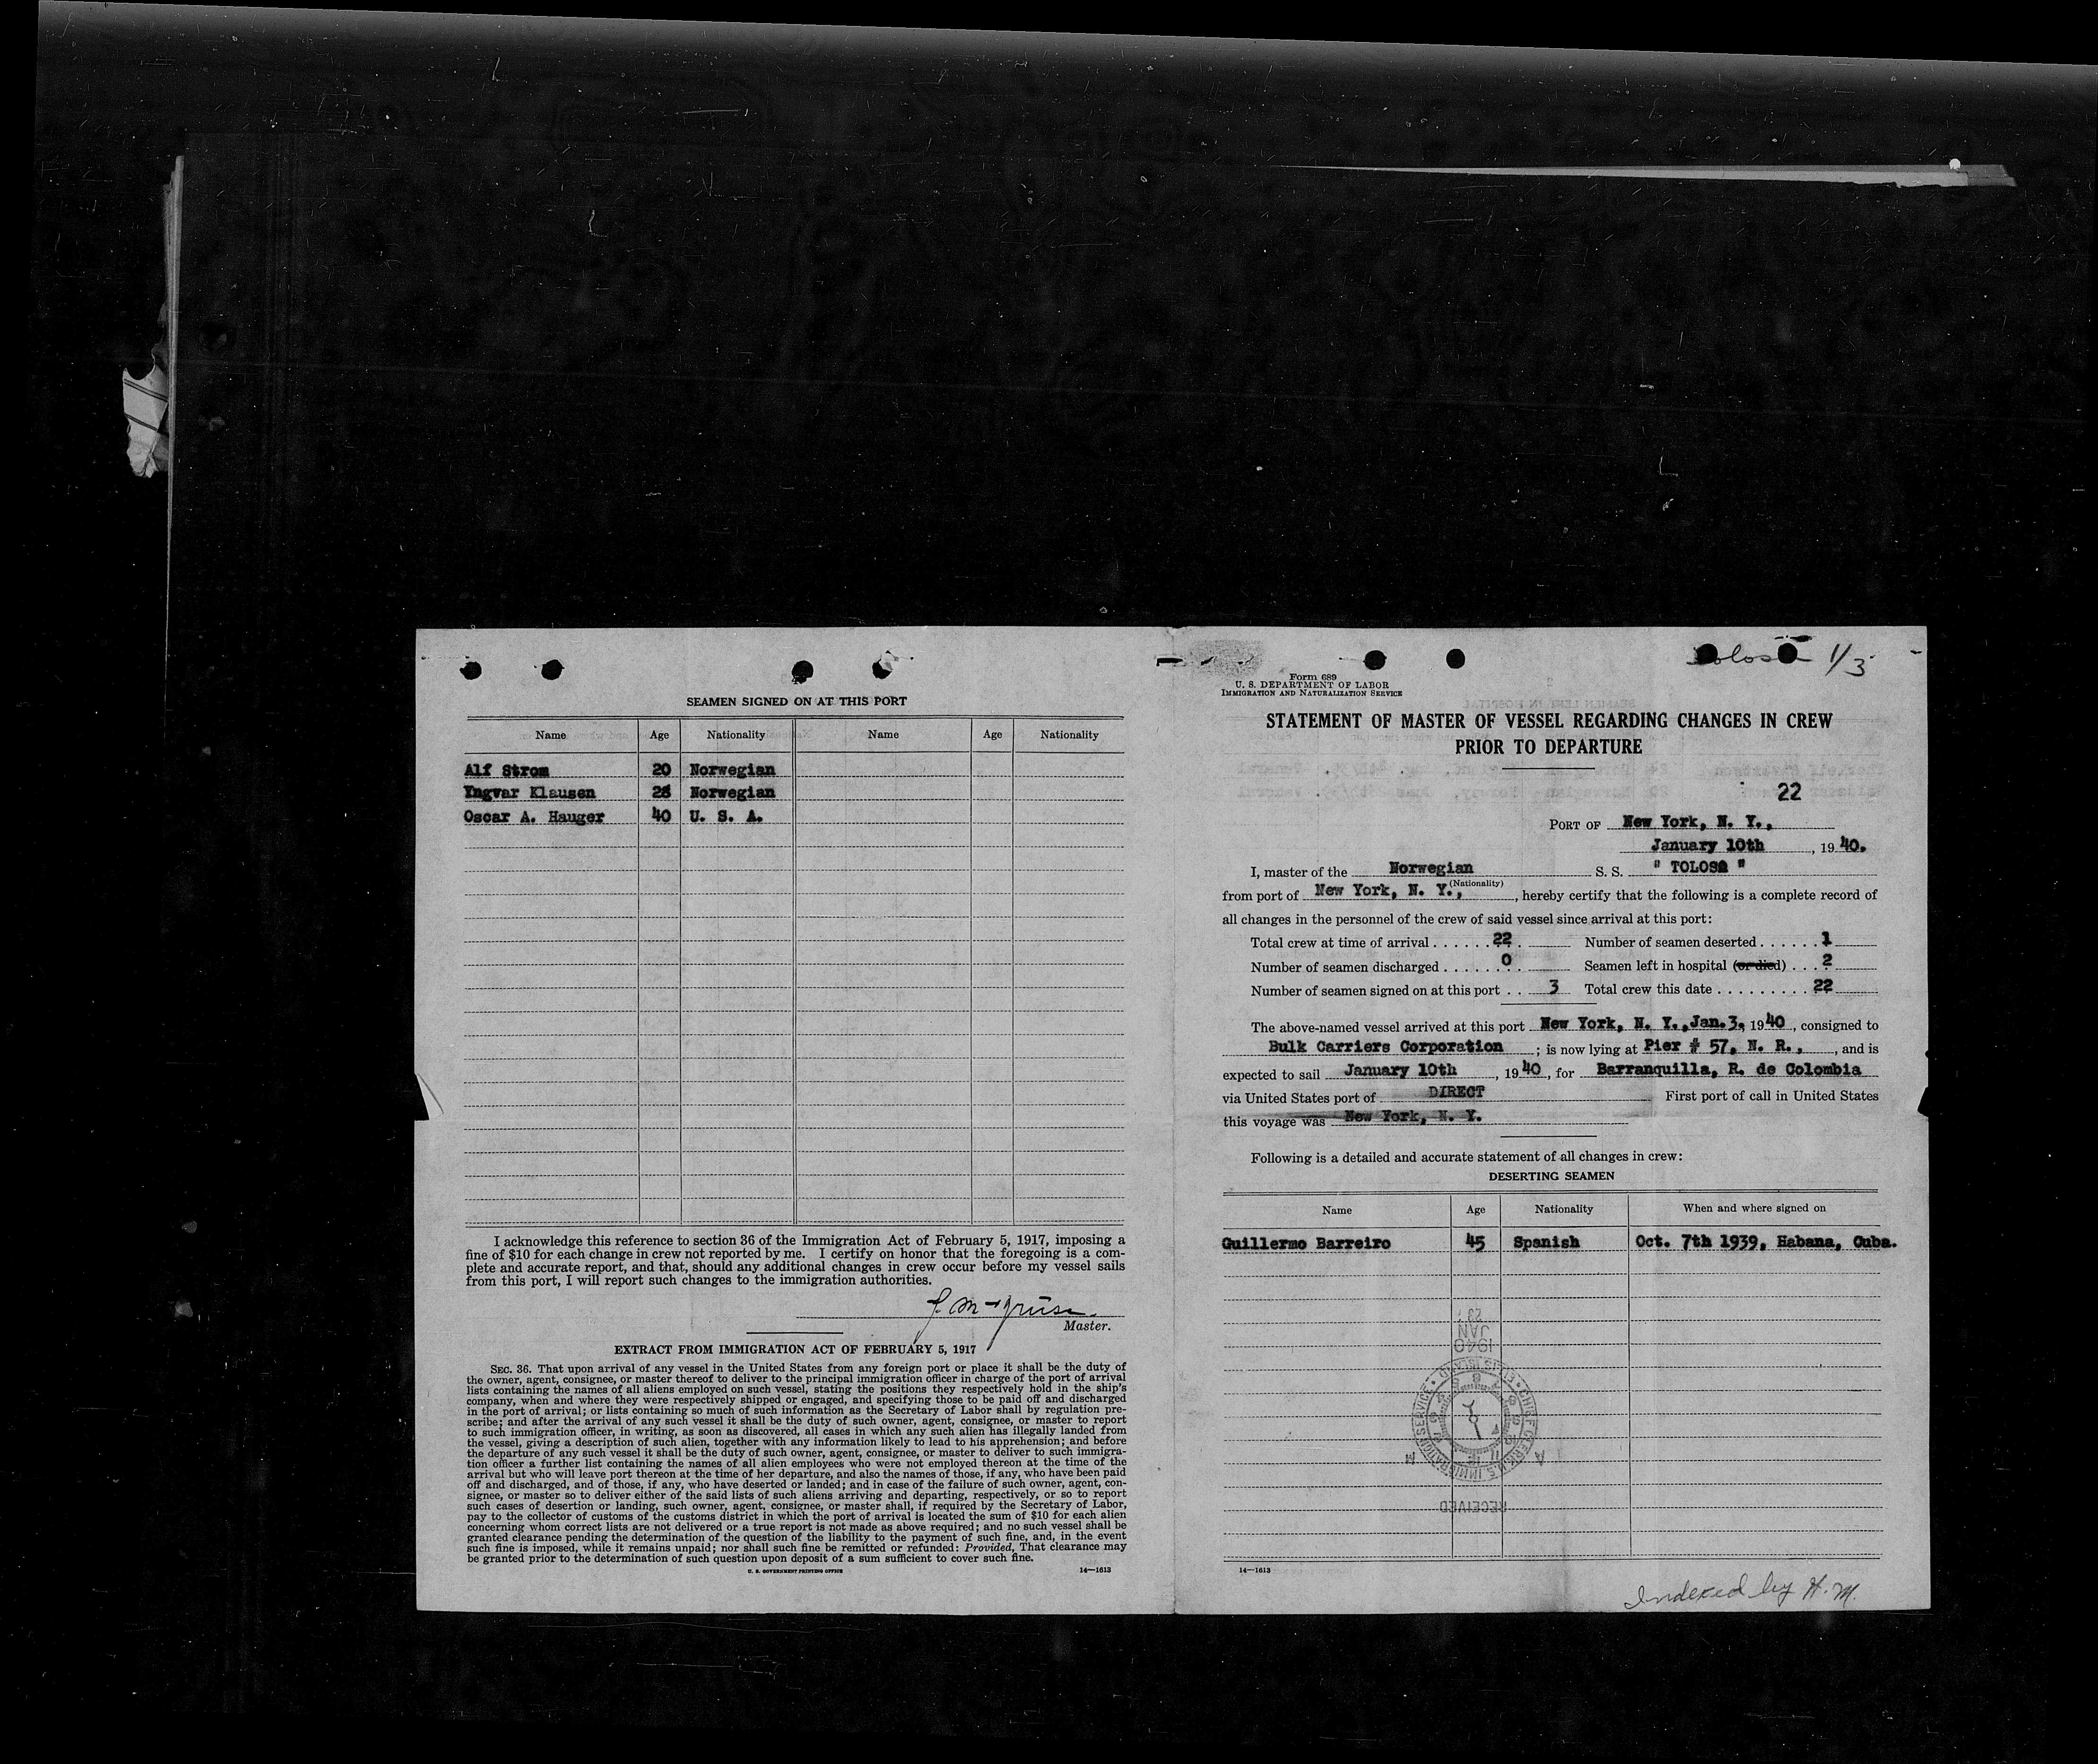 SEAMEN SIGNED ON AT THIS PORT
Name Age Nationality Name Age Nationality
Alf Strom 20 Norwegian
Yngvar Klausen 28 Norwegian
Oscar A. Hauger 40 U. S. A.
I acknowledge this reference to section 36 of the Immigration Act of February 5, 1917, imposing a
fine of $10 for each change in crew not reported by me. I certify on honor that the foregoing is a com-
plete and accurate report, and that, should any additional changes in crew occur before my vessel sails
from this port, I will report such changes to the immigration authorities.
Master.
EXTRACT FROM IMMIGRATION ACT OF FEBRUARY 5, 1917
SEC. 36. That upon arrival of any vessel in the United States from any foreign port or place it shall be the duty of
the owner, agent, consignee, or master thereof to deliver to the principal immigration officer in charge of the port of arrival
lists containing the names of all aliens employed on such vessel, stating the positions they respectively hold in the ship's
company, when and where they were respectively shipped or engaged, and specifying those to be paid off and discharged
in the port of arrival; or lists containing so much of such information as the Secretary of Labor shall by regulation pre-
scribe; and after the arrival of any such vessel it shall be the duty of such owner, agent, consignee, or master to report
to such immigration officer, in writing, as soon as discovered, all cases in which any such alien has illegally landed from
the vessel, giving a description of such alien, together with any information likely to lead to his apprehension; and before
the departure of any such vessel it shall be the duty of such owner, agent, consignee, or master to deliver to such immigra-
tion officer a further list containing the names of all alien employees who were not employed thereon at the time of the
arrival but who will leave port thereon at the time of her departure, and also the names of those, if any, who have been paid
off and discharged, and of those, if any, who have deserted or landed; and in case of the failure of such owner, agent, con-
signee, or master so to deliver either of the said lists of such aliens arriving and departing, respectively, or so to report
such cases of desertion or landing, such owner, agent, consignee, or master shall, if required by the Secretary of Labor,
pay to the collector of customs of the customs district in which the port of arrival is located the sum of $10 for each alien
concerning whom correct lists are not delivered or a true report is not made as above required; and no such vessel shall be
granted clearance pending the determination of the question of the liability to the payment of such fine, and, in the event
such fine is imposed, while it remains unpaid; nor shall such fine be remitted or refunded: Provided, That clearance may
be granted prior to the determination of such question upon deposit of a sum sufficient to cover such fine.
U. S. GOVERNMENT PRINTING OFFICE 14—1613
Tolosa 1/3
Form 689
U. S. DEPARTMENT OF LABOR
IMMIGRATION AND NATURALIZATION SERVICE
STATEMENT OF MASTER OF VESSEL REGARDING CHANGES IN CREW
PRIOR TO DEPARTURE
22
PORT OF New York, N. Y.,
January 10th, 1940.
I, master of the Norwegian S. S. " TOLOSA "
(Nationality)
from port of New York, N. Y., hereby certify that the following is a complete record of
all changes in the personnel of the crew of said vessel since arrival at this port:
Total crew at time of arrival . . . . . . 22 Number of seamen deserted . . . . . . 1
Number of seamen discharged . . . . . . . 0 Seamen left in hospital (or died) . . . 2
Number of seamen signed on at this port . . 3 Total crew this date . . . . . . . . . 22
The above-named vessel arrived at this port New York, N. Y., Jan. 3, 1940, consigned to
Bulk Carriers Corporation; is now lying at Pier # 57, N. R., and is
expected to sail January 10th, 1940, for Barranquilla, R. de Colombia
via United States port of DIRECT First port of call in United States
this voyage was New York, N. Y.
Following is a detailed and accurate statement of all changes in crew:
DESERTING SEAMEN
Name Age Nationality When and where signed on
Guillermo Barreiro 45 Spanish Oct. 7th 1939, Habana, Cuba.
1940
JAN
23
RECEIVED
14—1613
Indexed by H. M.